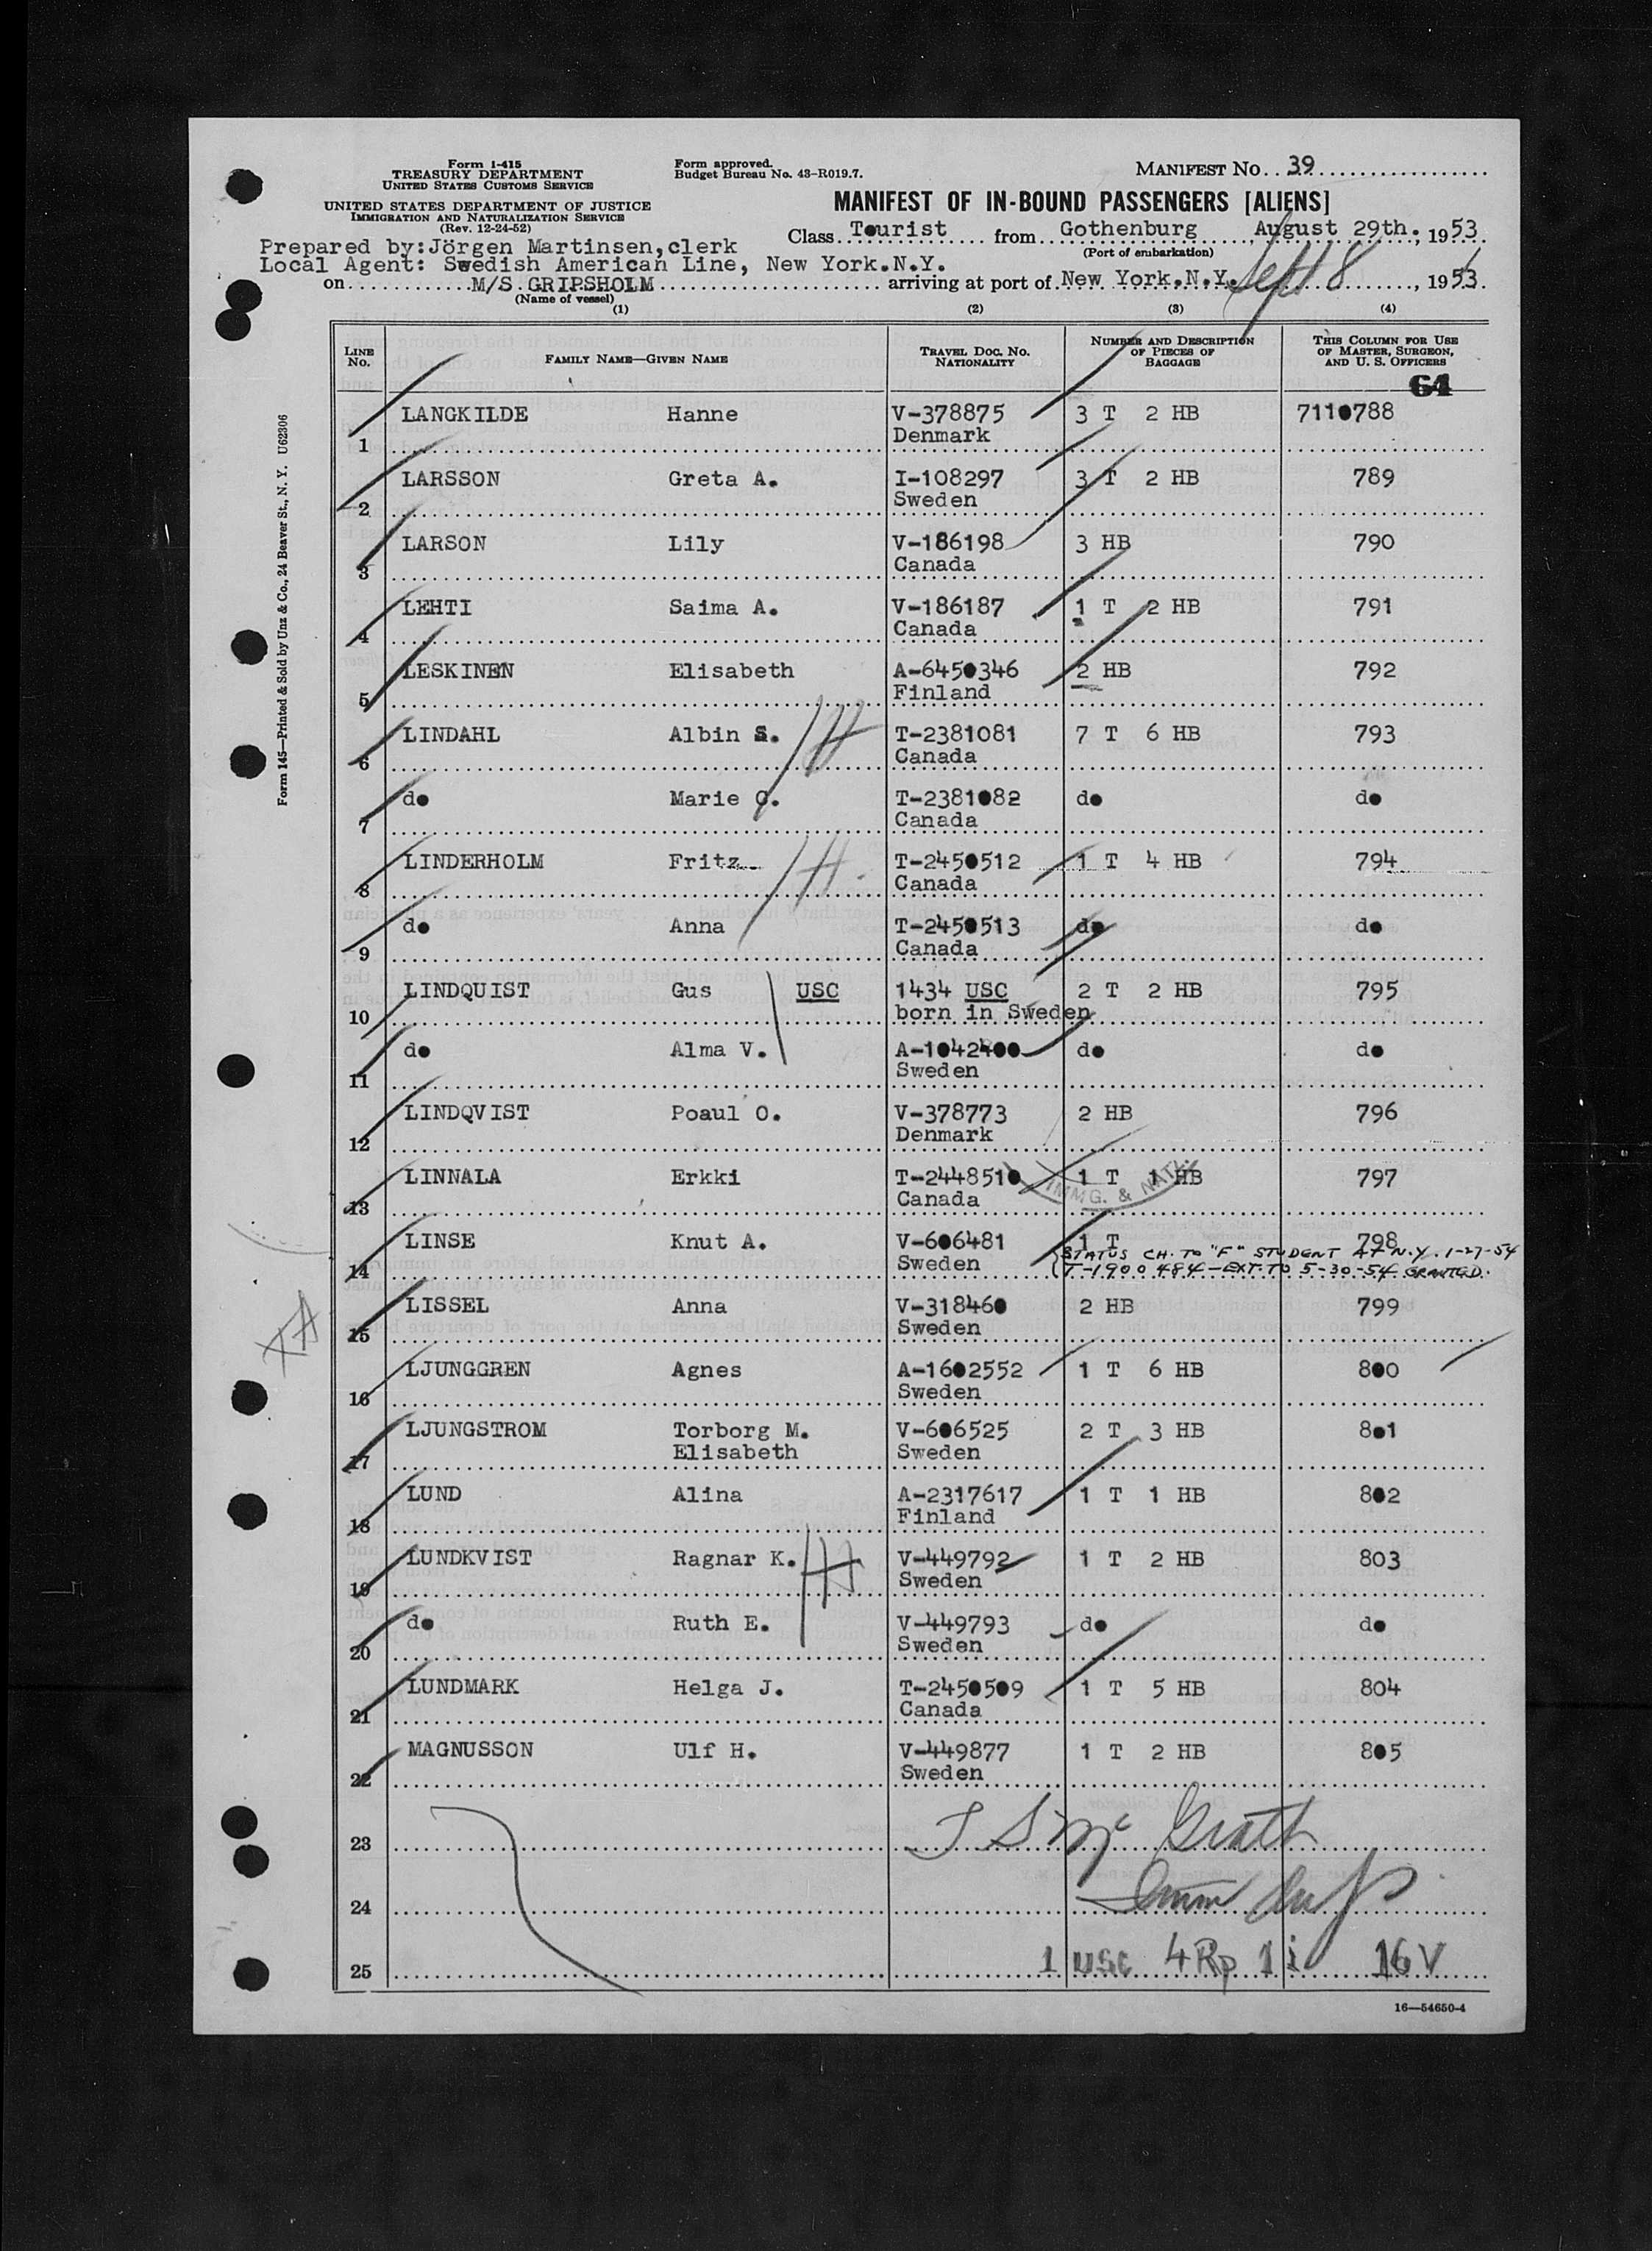 Form I-415
TREASURY DEPARTMENT
UNITED STATES CUSTOMS SERVICE
UNITED STATES DEPARTMENT OF JUSTICE
IMMIGRATION AND NATURALIZATION SERVICE
(Rev. 12-24-52)
Form approved.
Budget Bureau No. 43-R019.7.
MANIFEST NO. 39
MANIFEST OF IN-BOUND PASSENGERS [ALIENS]
Class Tourist from Gothenburg, August 29th. 1953
(Port of embarkation)
Prepared by: Jörgen Martinsen, clerk
Local Agent: Swedish American Line, New York.N.Y.
on M/S GRIPSHOLM arriving at port of New York.N.Y. Sept 8, 1953
(Name of vessel)
(1) (2) (3) (4)
LINE NO. FAMILY NAME—GIVEN NAME TRAVEL DOC. NO. NATIONALITY NUMBER AND DESCRIPTION OF PIECES OF BAGGAGE THIS COLUMN FOR USE OF MASTER, SURGEON, AND U. S. OFFICERS
64
1 LANGKILDE Hanne V-378875 3 T 2 HB 7110788
Denmark
2 LARSSON Greta A. I-108297 3 T 2 HB 789
Sweden
3 LARSON Lily V-186198 3 HB 790
Canada
4 LEHTI Saima A. V-186187 1 T 2 HB 791
Canada
5 LESKINEN Elisabeth A-6450346 2 HB 792
Finland
6 LINDAHL Albin S. T-2381081 7 T 6 HB 793
Canada
7 do Marie C. T-2381082 do do
Canada
8 LINDERHOLM Fritz T-2450512 1 T 4 HB 794
Canada
9 do Anna T-2450513 do do
Canada
10 LINDQUIST Gus USC 1434 USC 2 T 2 HB 795
born in Sweden
11 do Alma V. A-1042400 do do
Sweden
12 LINDQVIST Poaul O. V-378773 2 HB 796
Denmark
13 LINNALA Erkki T-2448510 1 T 1 HB 797
Canada
IMMG. & NATZ.
14 LINSE Knut A. V-606481 1 T 798
Sweden
STATUS CH. TO "F" STUDENT AT N.Y. 1-27-54
T-1900484-EXT. TO 5-30-54 GRANTED.
15 LISSEL Anna V-318460 2 HB 799
Sweden
16 LJUNGGREN Agnes A-1602552 1 T 6 HB 800
Sweden
17 LJUNGSTROM Torborg M. V-606525 2 T 3 HB 801
Elisabeth Sweden
18 LUND Alina A-2317617 1 T 1 HB 802
Finland
19 LUNDKVIST Ragnar K. V-449792 1 T 2 HB 803
Sweden
20 do Ruth E. V-449793 do do
Sweden
21 LUNDMARK Helga J. T-2450509 1 T 5 HB 804
Canada
22 MAGNUSSON Ulf H. V-449877 1 T 2 HB 805
Sweden
23 McGrath
24
25 1 USC 4 Rp 1 i 16 V
16—54650-4
Form 145—Printed & Sold by Unz & Co., 24 Beaver St., N. Y. U62306